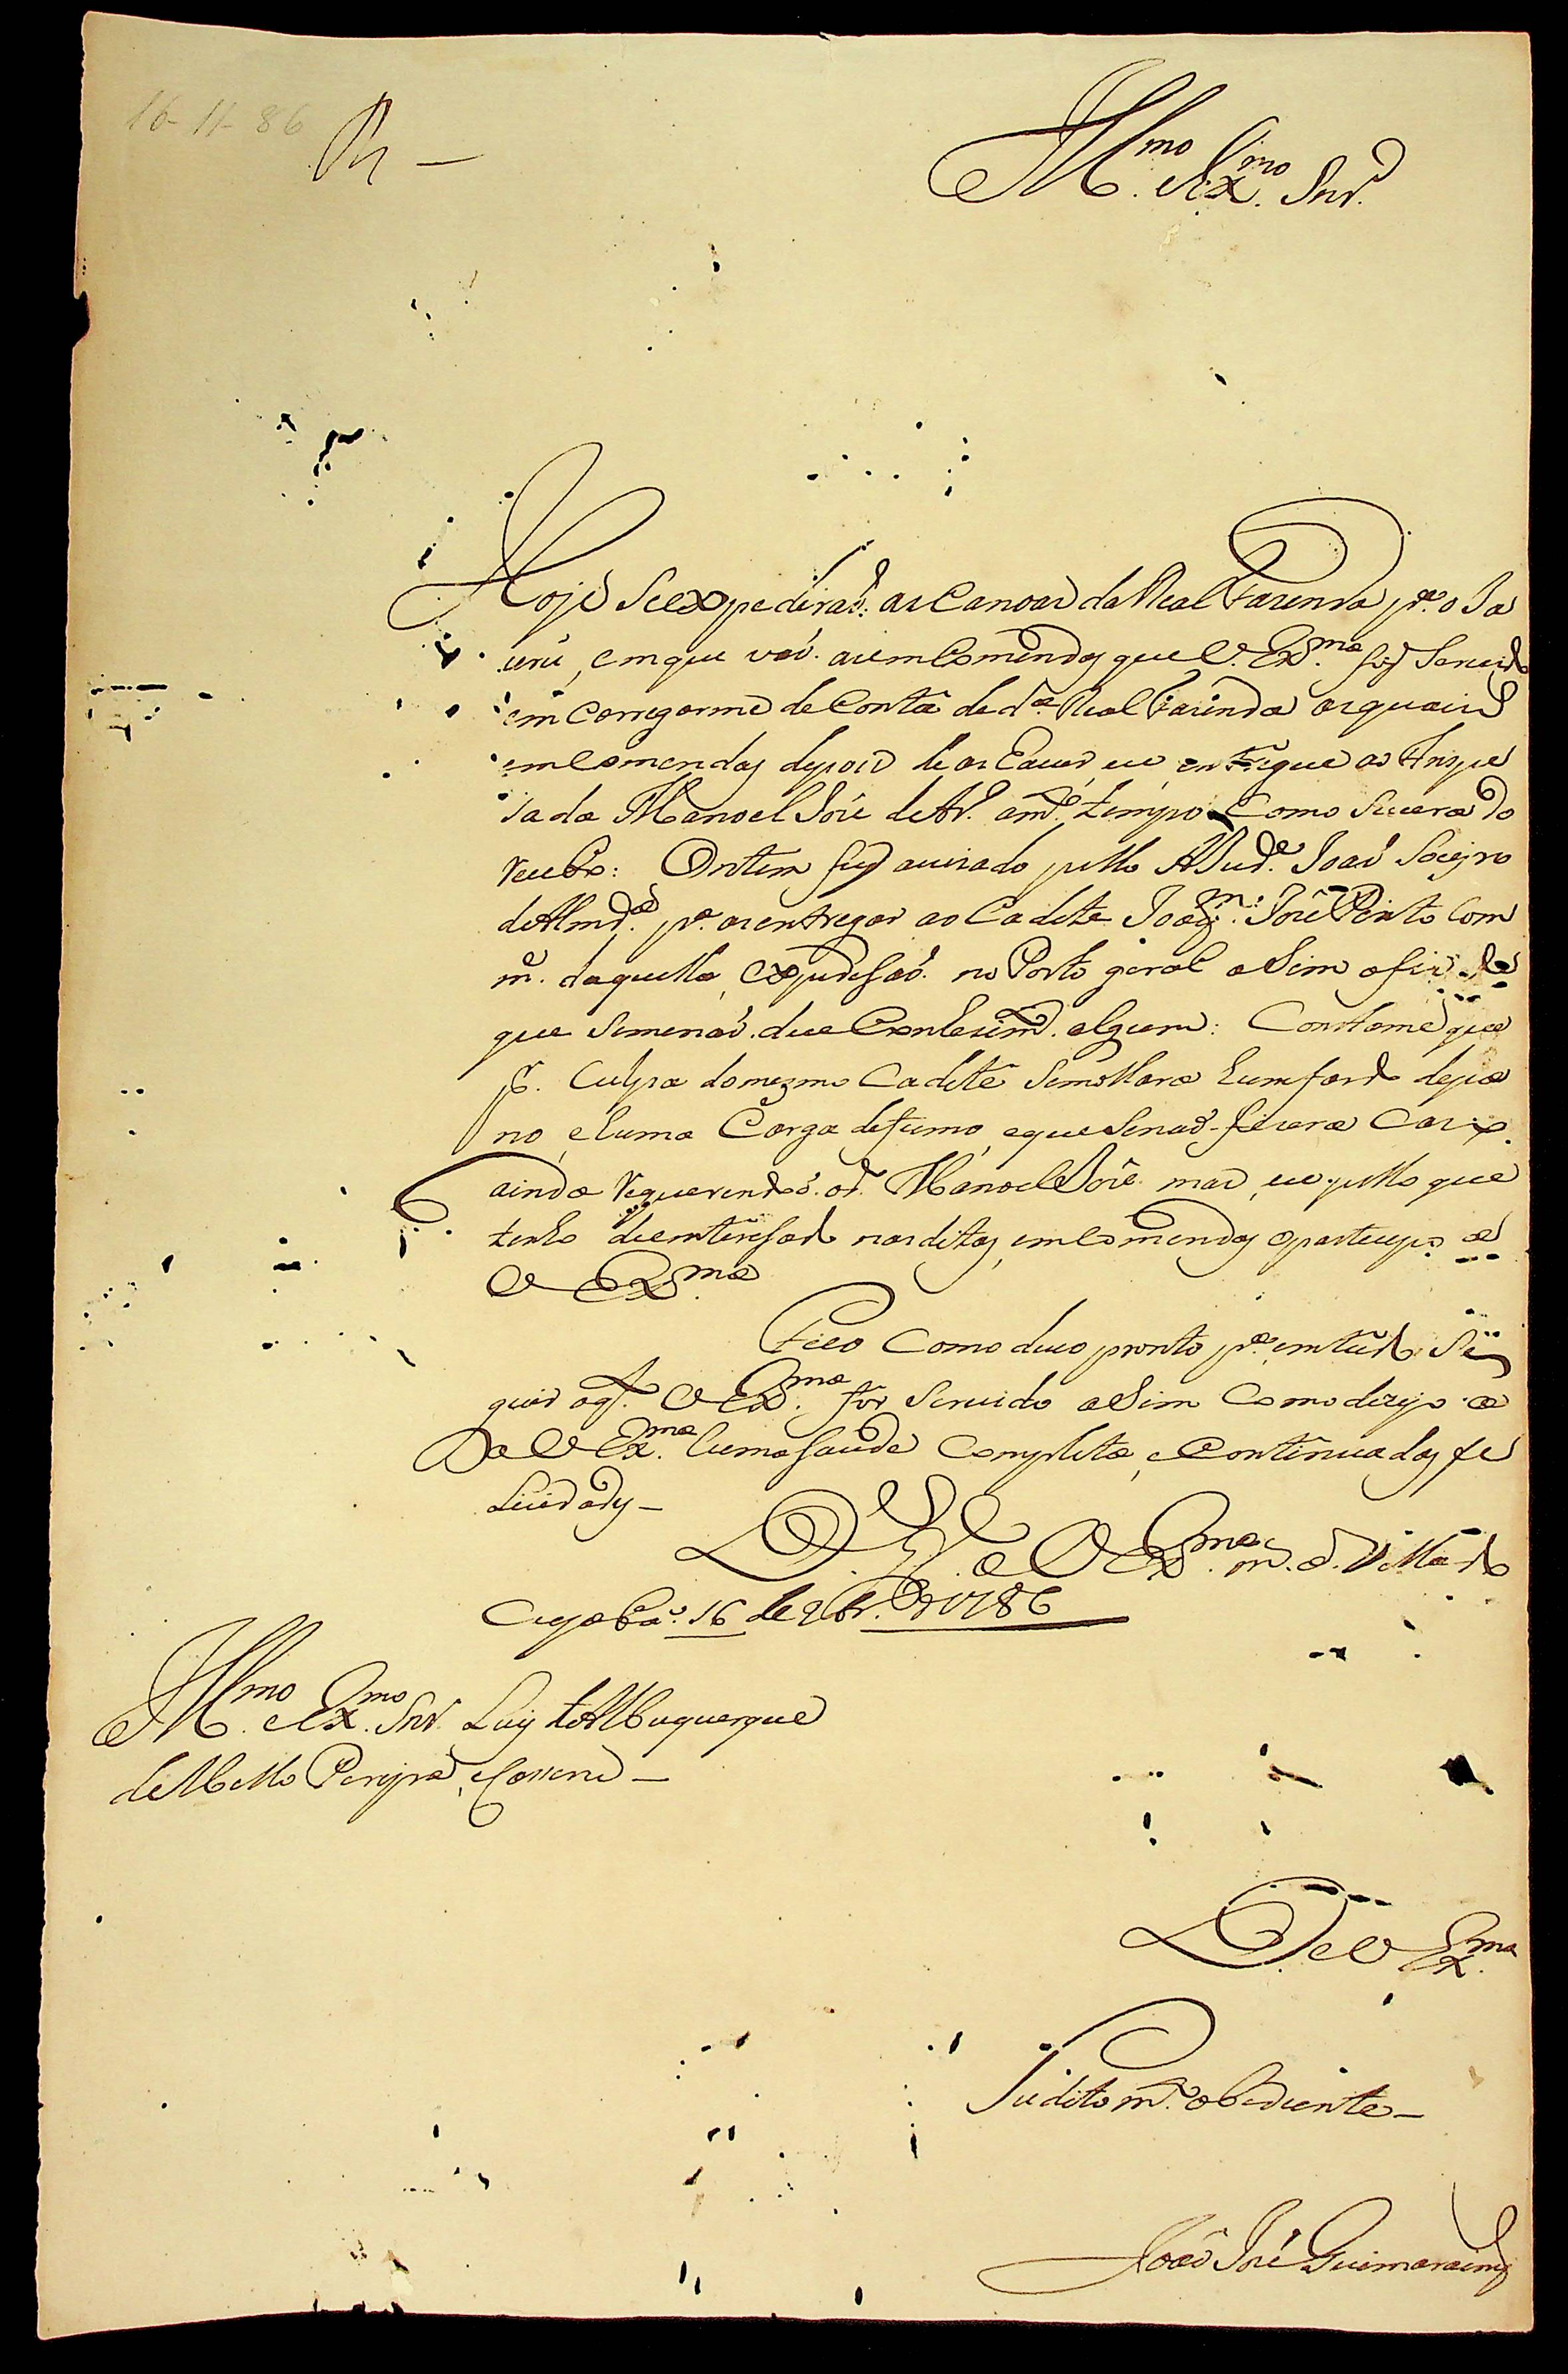 16-11-86
Rn —
Ill.mo e Ex.mo Snr.
Hoje Se expediraõ. as Canoas da Real Fazenda p.a o Ja
urú, em que vaõ. as emComendas que V. Ex.ma foy Servido
em Carregarme de Conta de d.a Real Fazenda as quais
emComendas depois de as haver eu entregue ao Anspe
sada Manoel Joze de Ar.º a m.to tempo Como Severa do
recibo: Ontem fuy avizado pello AJud.e Joaõ Soeyro
de Almd.a p.a as entregar ao Cadete Joaq.m Joze Pinto Com
m.e daquella expediçaõ. no Porto geral aSim o fiz
que Semenaõ. due Conhecim.to algum: Constame que
p.r Culpa do mezmo Cadete Semolhara hum fardo de pa
no, e huma Carga de fumo, eque Senaõ. fizera Cazo
ainda requerendoó. o d.º Manoel Joze mas eu pello que
tenho de enterese nas ditas emComendas o partecipo a
V Ex.ma
Fico Como devo pronto p.a em tudo Se
guir o q.e V Ex.ma for Servido aSim Como dezejo a
a V Ex.ma huma Saude Completa, e Continuadas fe
Licidades —
D. G.e a V Ex.ma m. a. Villa do
Cuyabá. 16 de 9br.º de 1786
Ill.mo e Ex.mo Snr. Luiz de Albuquerque
de Mello Pereyra, e Caceres —
De V Ex.ma
Sudito m.to obediente —
Joaõ Joze Guimaraens